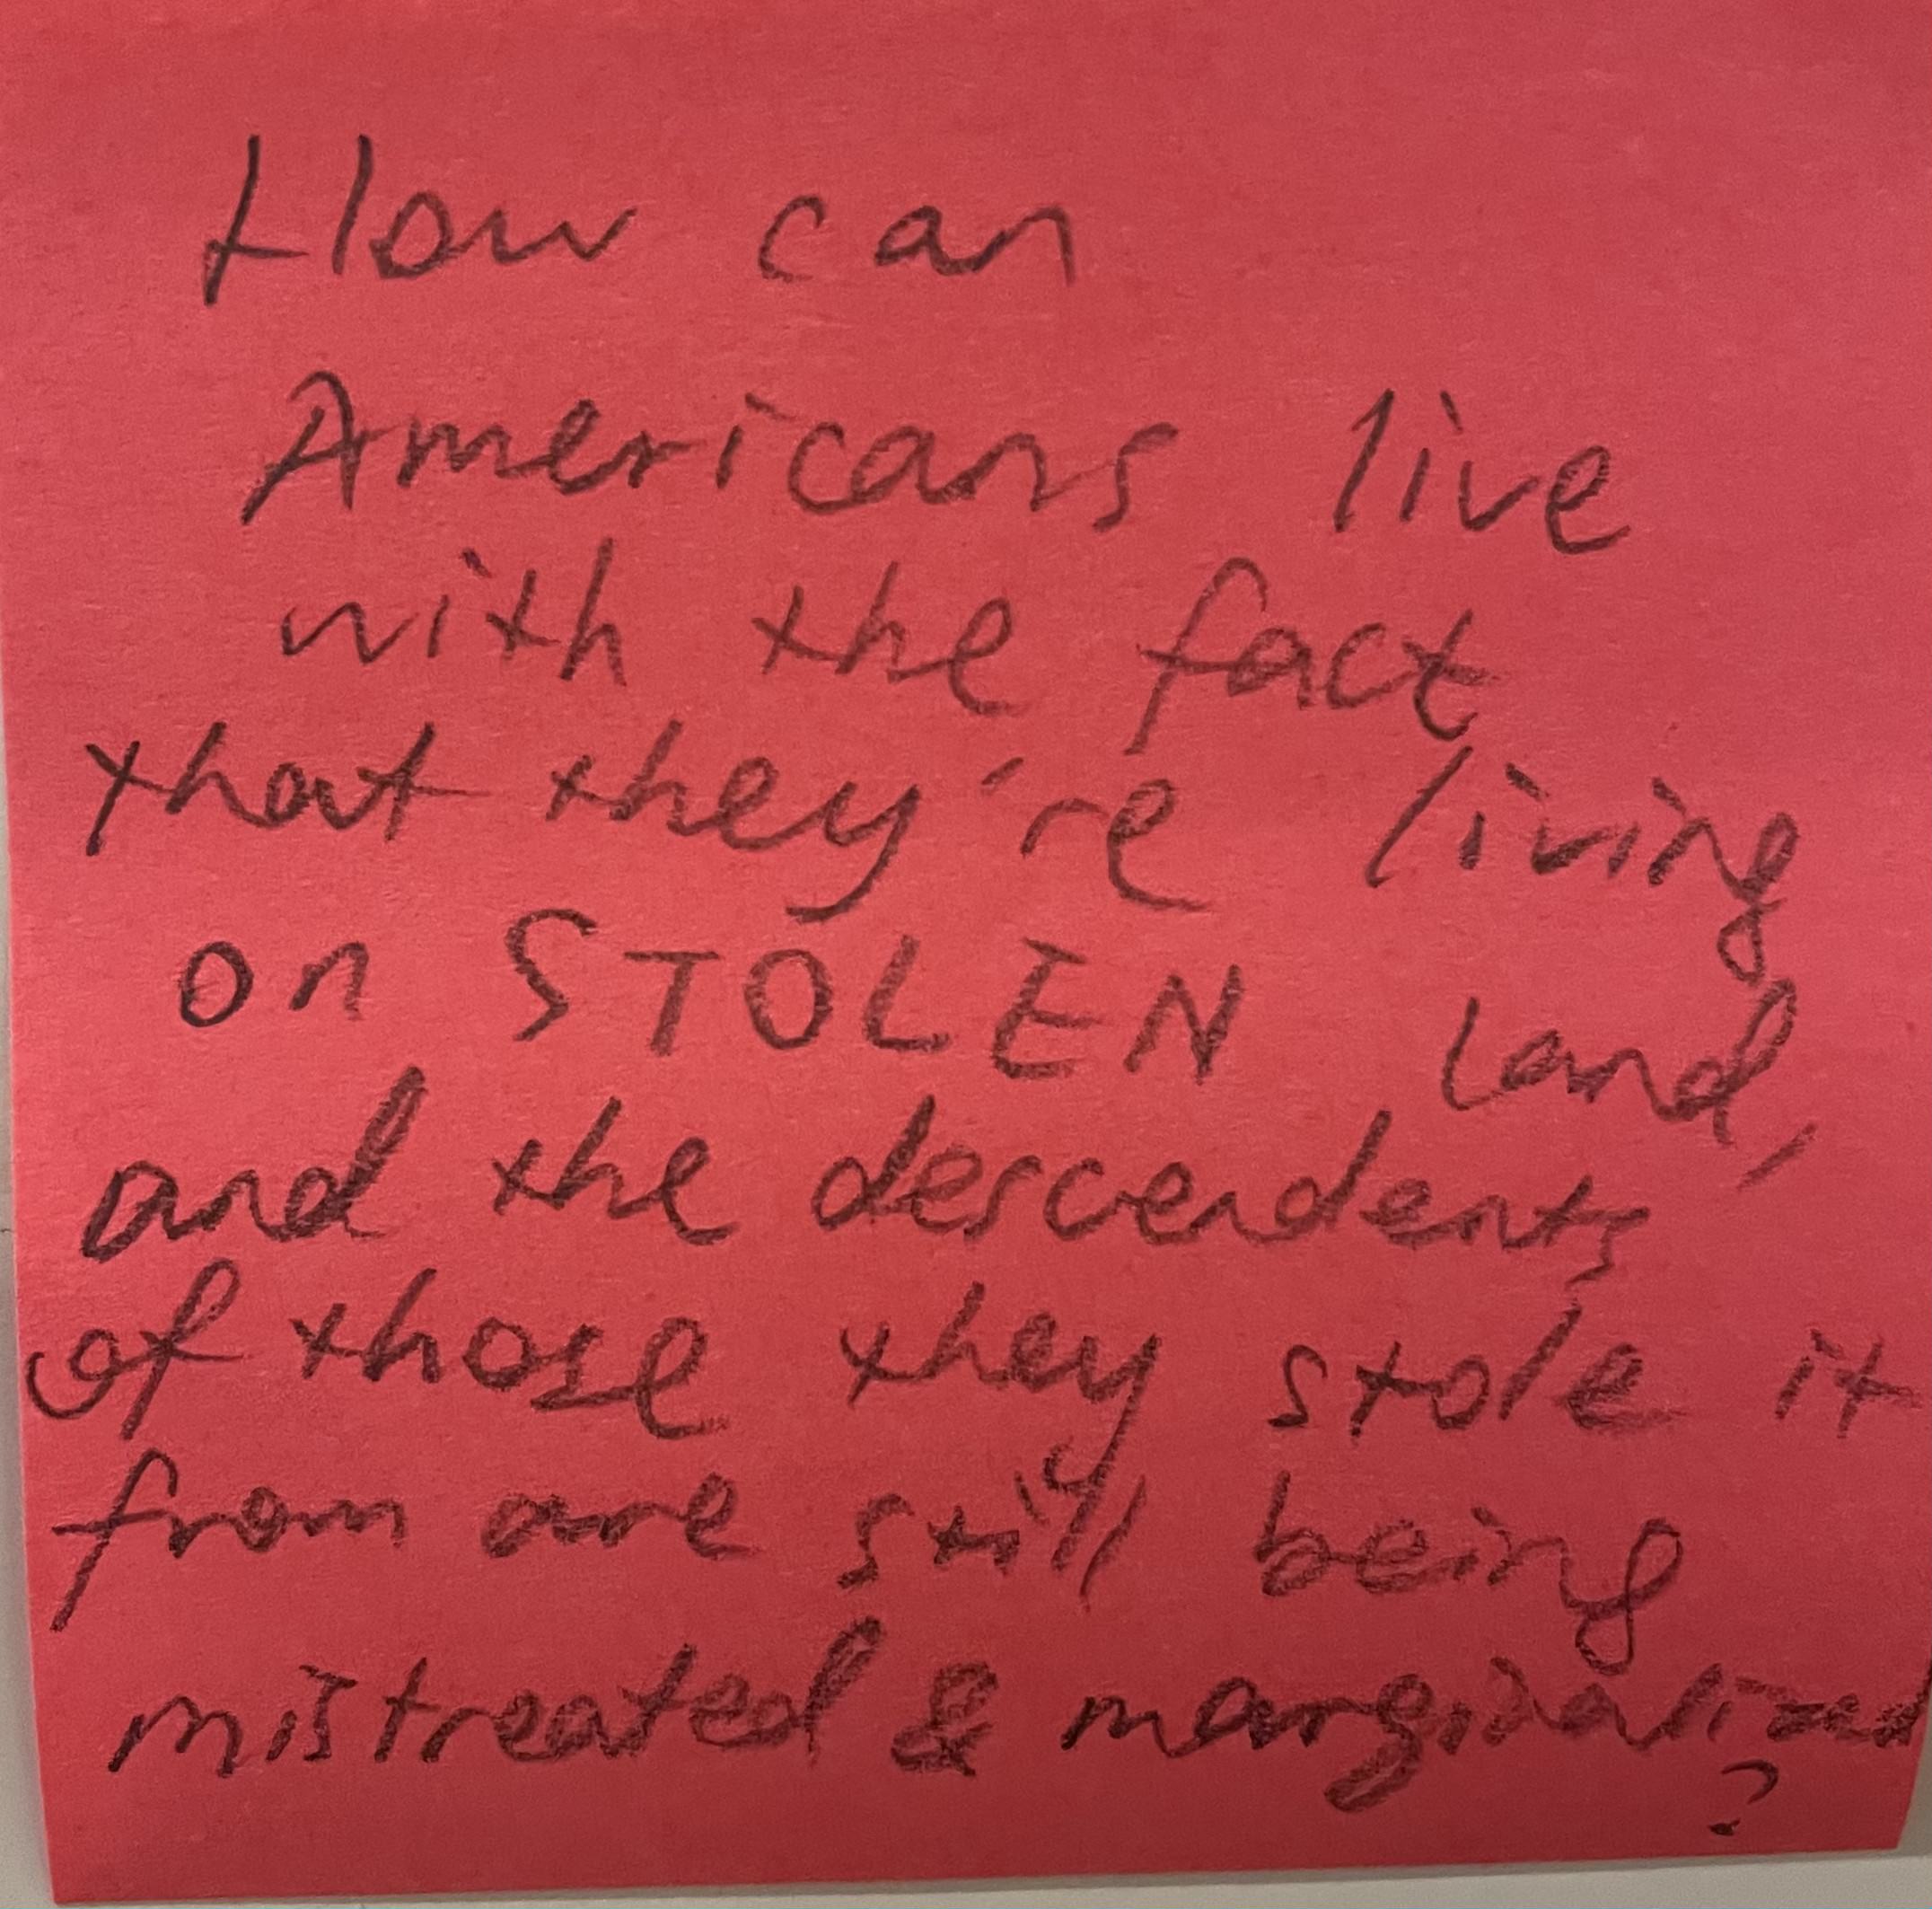 How can
Americans live
with the fact
that they're living
on STOLEN land,
and the descendents
of those they stole it
from are still being
mistreated & marginalized
?